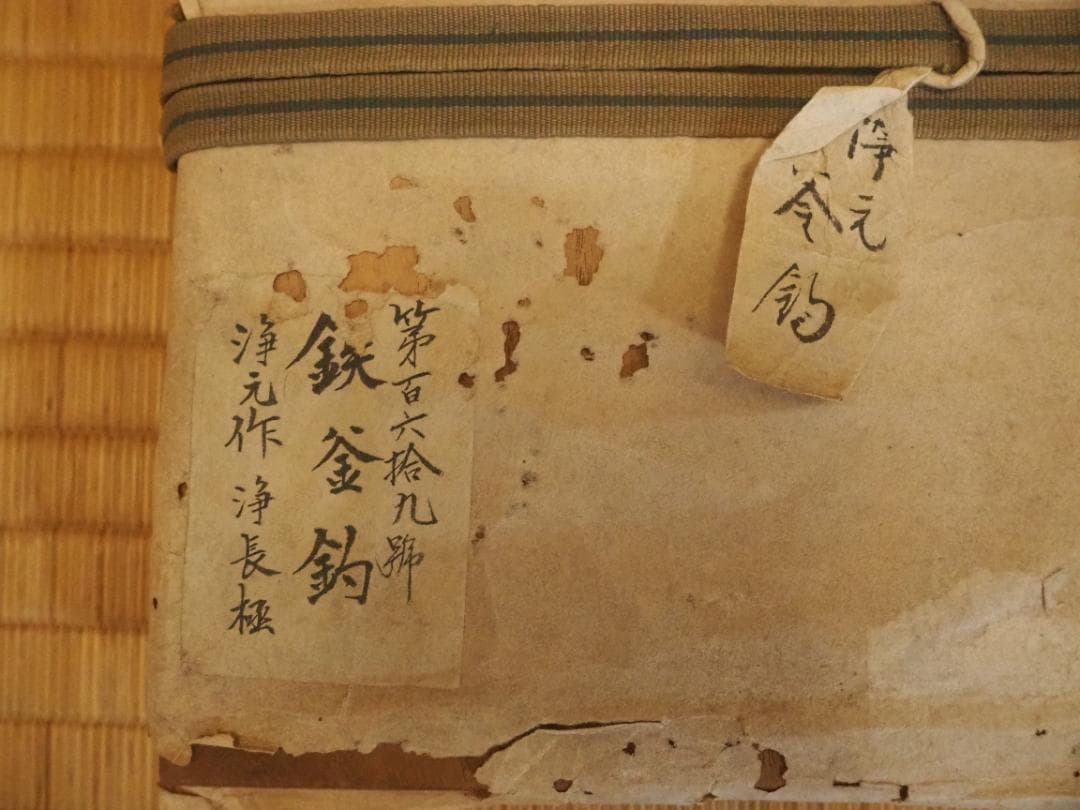 第百六拾九號
鉄釜釣
浄元作 浄長極
浄元
釜釣